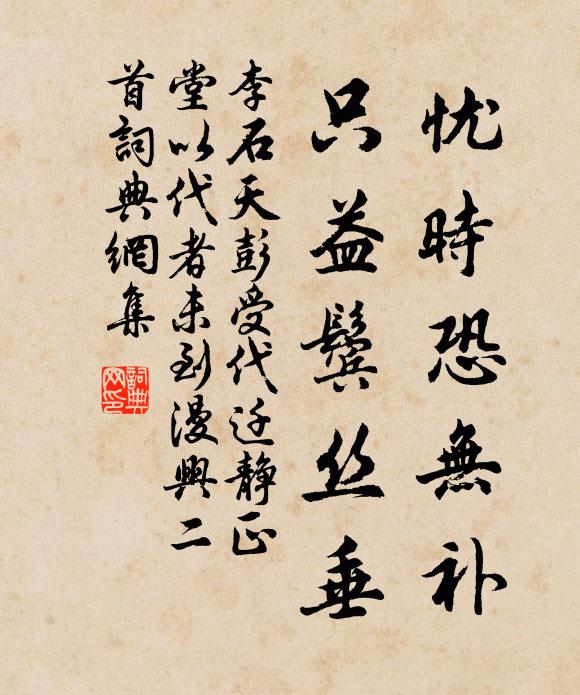 忧時恐無补
只益鬓丝垂
李石天彭受代迁靜正
堂以代者未到漫興二
首詞典網集
詞典网印